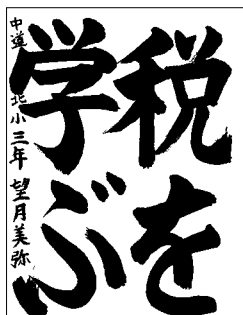 税を
学ぶ
中道北小三年 望月美弥